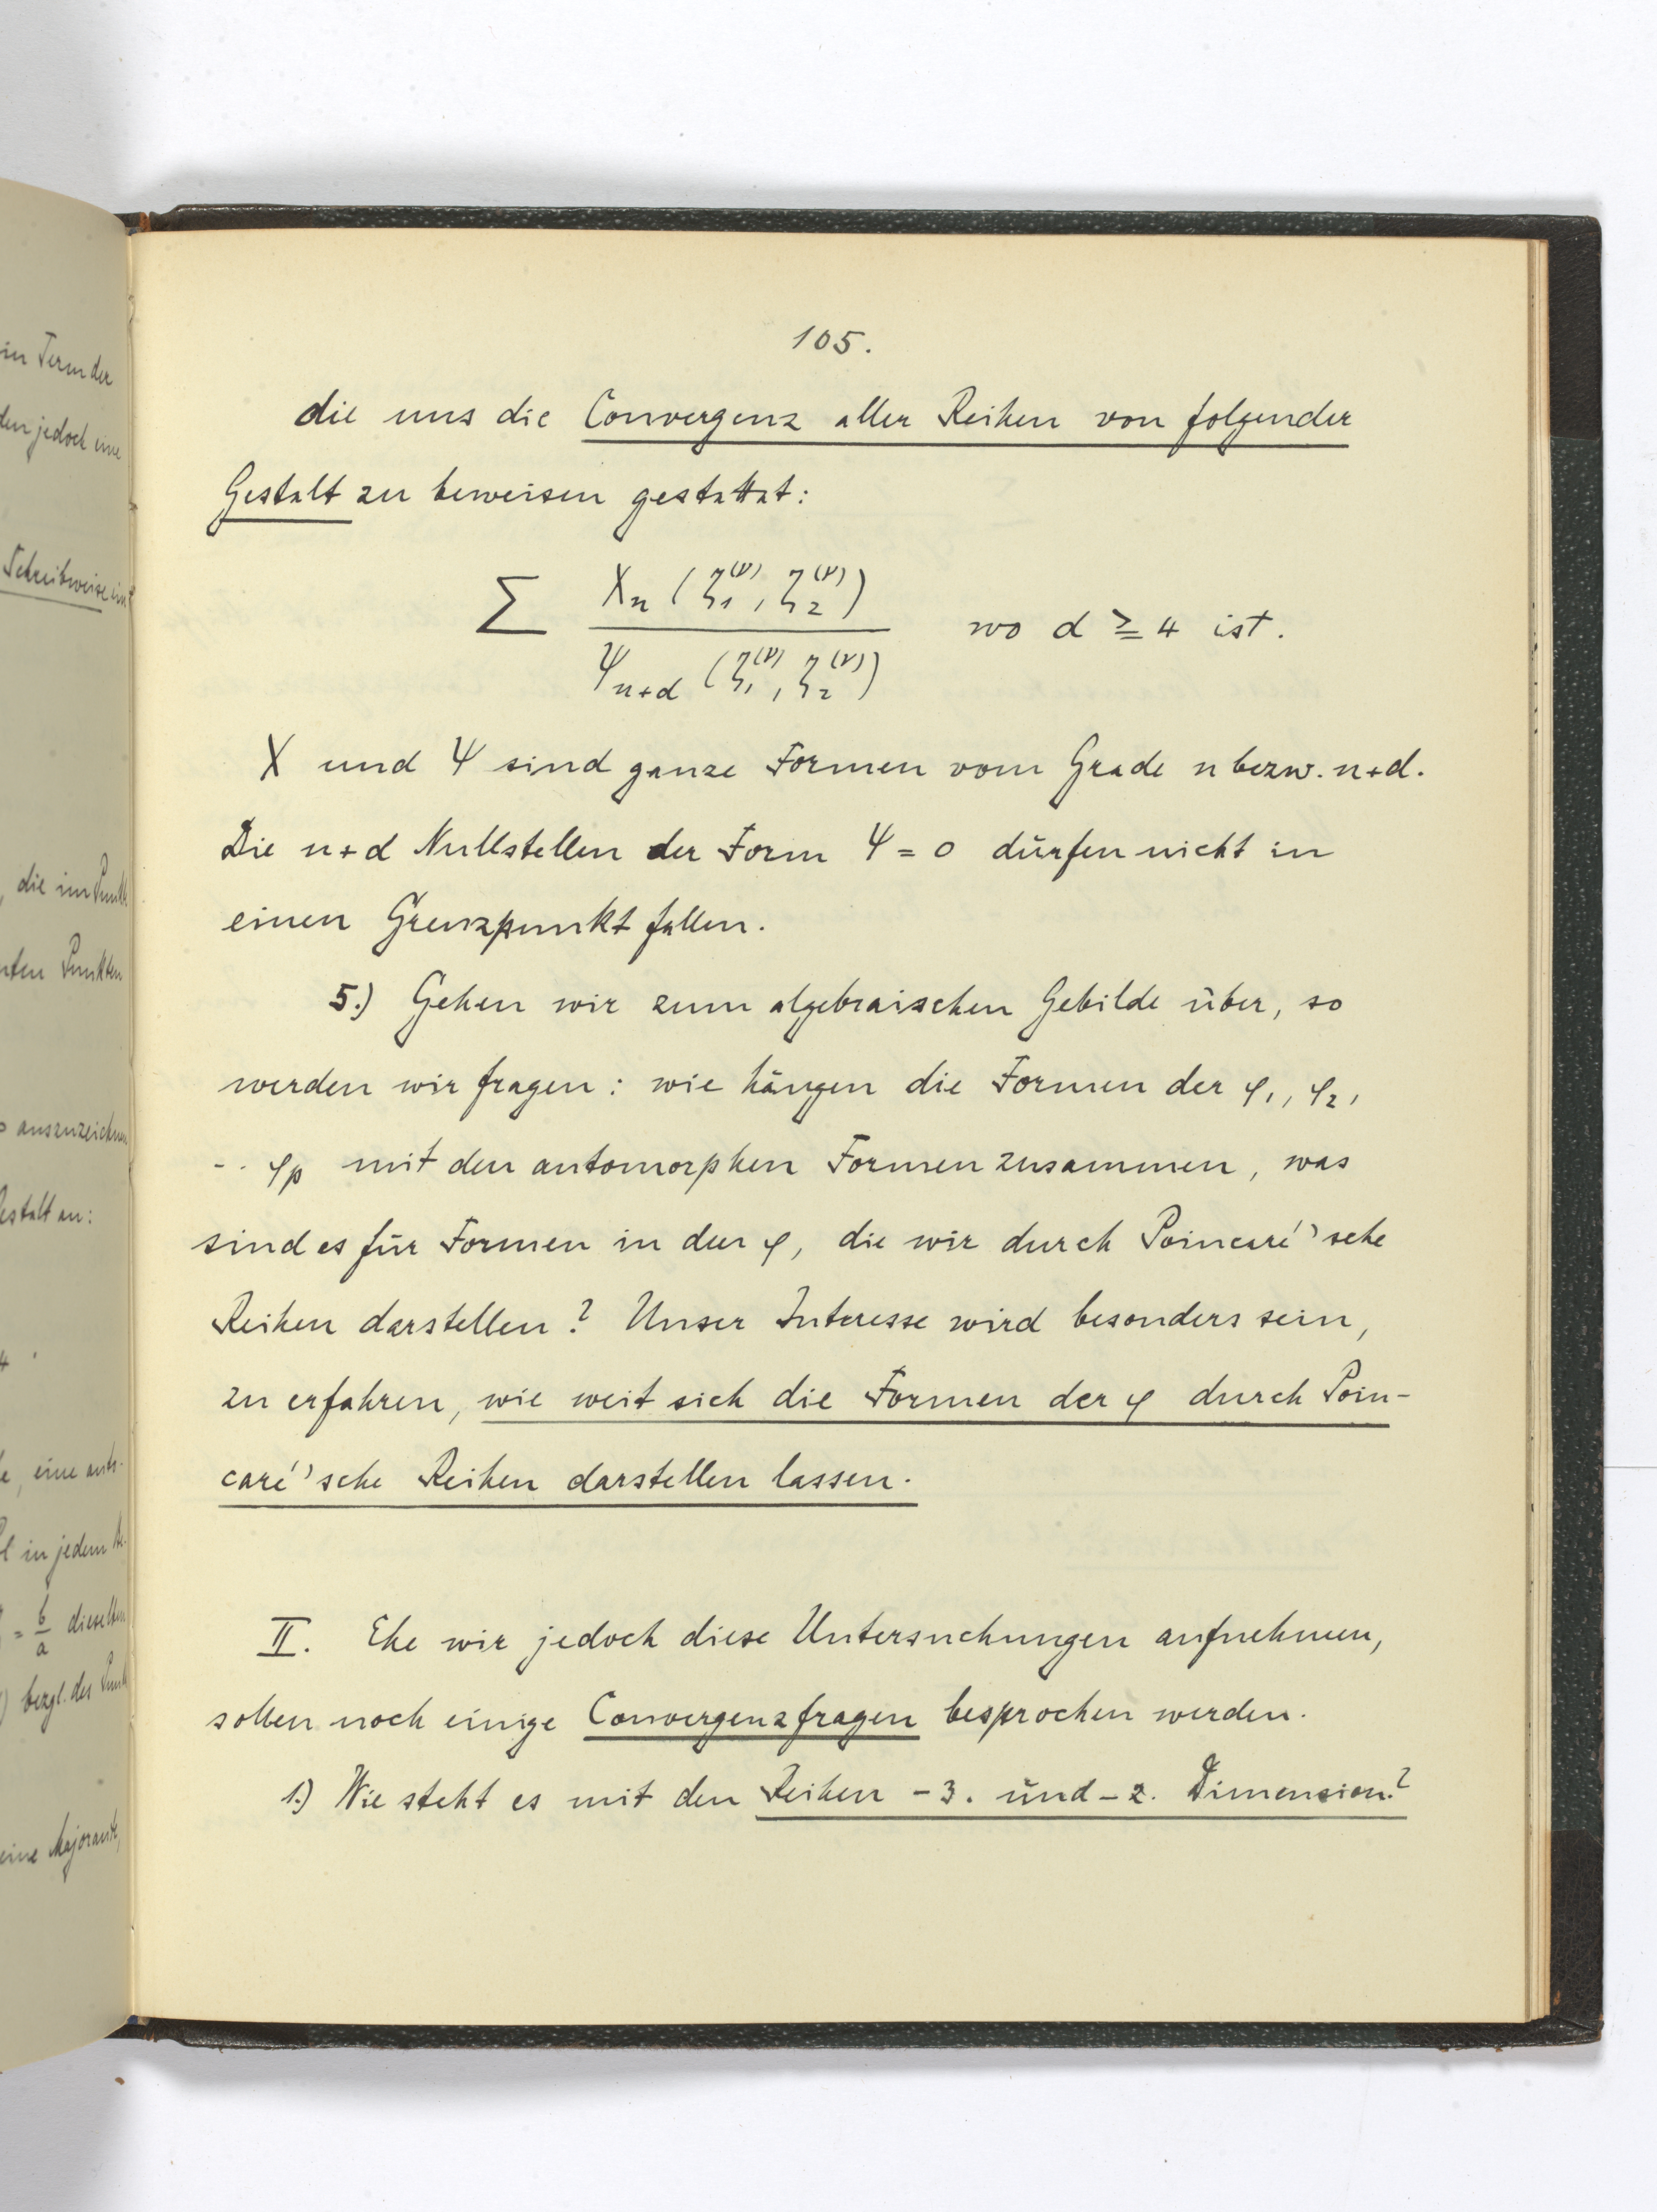 105.
die uns die Convergenz aller Reihen von folgender
Gestalt zu beweisen gestattet:
∑ X_n (ζ_1^(ν), ζ_2^(ν)) / Ψ_{n+d} (ζ_1^(ν), ζ_2^(ν)) wo d ≥ 4 ist.
X und Ψ sind ganze Formen vom Grade n bezw. n+d.
Die n+d Nullstellen der Form Ψ = 0 dürfen nicht in
einen Grenzpunkt fallen.
5.) Gehen wir zum algebraischen Gebilde über, so
werden wir fragen: wie hängen die Formen der φ_1, φ_2,
.. φ_p mit den automorphen Formen zusammen, was
sind es für Formen in den φ, die wir durch Poincaré'sche
Reihen darstellen? Unser Interesse wird besonders sein,
zu erfahren, wie weit sich die Formen der φ durch Poin-
caré'sche Reihen darstellen lassen.
II. Ehe wir jedoch diese Untersuchungen aufnehmen,
sollen noch einige Convergenzfragen besprochen werden.
1.) Wie steht es mit den Reihen -3. und -2. Dimension?
in Term der
den jedoch eine
Schreibweise
, die im Punkt
Punkten
auszuzeichnen
estalt an:
4.
, eine
l in jedem
= b/a dieselben
) bezgl. des Punk
eine Majorante,